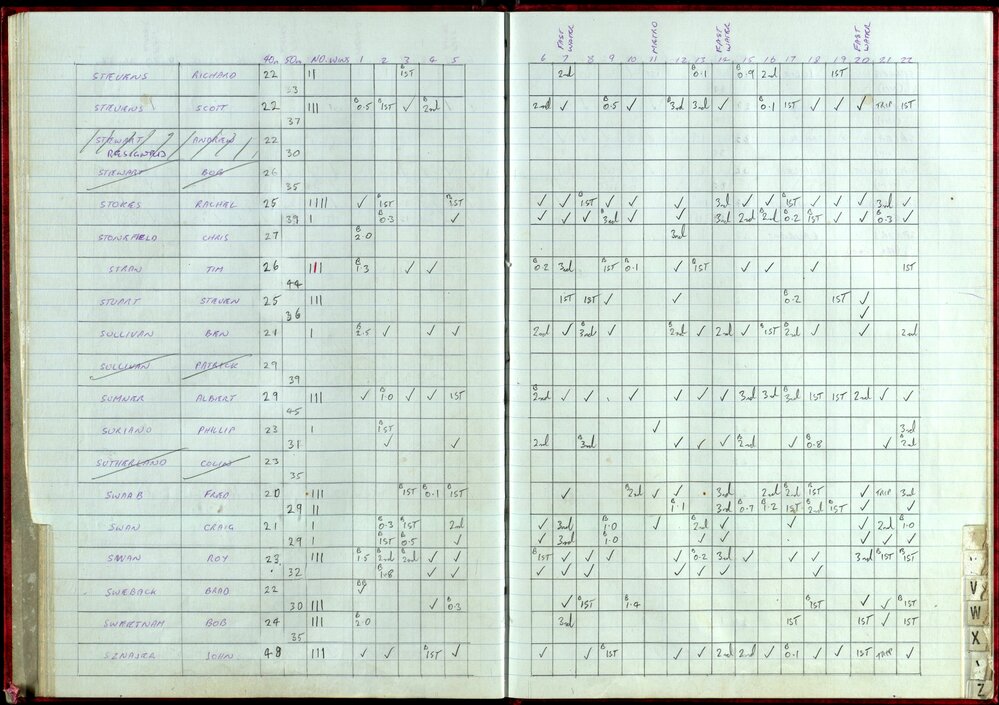 FAST WATER METRO FAST WATER FAST WATER
40m 50m NO. WINS 1 2 3 4 5 6 7 8 9 10 11 12 13 14 15 16 17 18 19 20 21 22
STEVENS RICHARD 22 || B 1ST 2nd B 0.1 B 0.9 2nd 1ST
33
STEVENS SCOTT 22 ||| B 0.5 B 1ST ✓ B 2nd 2nd ✓ B 0.5 ✓ B 3rd 3rd ✓ B 0.1 1ST ✓ ✓ ✓ TRIP 1ST
37
STEWART ANDREW 22
RESIGNED 30
STEWART BOB 26
35
STOKES RACHEL 25 |||| ✓ B 1ST B 1ST ✓ ✓ B 1ST ✓ ✓ ✓ 3rd ✓ ✓ B 1ST ✓ ✓ ✓ 3rd ✓
39 | B 0.3 ✓ ✓ ✓ ✓ B 3rd ✓ ✓ 3rd 2nd B 2nd B 0.2 B 1ST ✓ ✓ B 0.3 ✓
STONEFIELD CHRIS 27 B 2.0 3rd
STRAW TIM 26 ||| B 1.3 ✓ ✓ B 0.2 3rd B 1ST B 0.1 ✓ B 1ST ✓ ✓ ✓ 1ST
44
STUART STEVEN 25 ||| 1ST 1ST ✓ ✓ B 0.2 1ST ✓
36 ✓
SULLIVAN BEN 21 | B 2.5 ✓ ✓ ✓ 2nd ✓ B 3rd ✓ B 2nd ✓ 2nd ✓ B 1ST B 2nd ✓ ✓ 2nd
SULLIVAN PATRICK 29
39
SUMNER ALBERT 29 ||| ✓ B 1.0 ✓ ✓ 1ST B 2nd ✓ ✓ ✓ ✓ ✓ ✓ 3rd 3rd B 3rd 1ST 1ST 2nd ✓ ✓
45
SURIANO PHILLIP 23 | B 1ST ✓ 3rd
31 ✓ ✓ 2nd B 3rd ✓ ✓ ✓ B 2nd ✓ B 0.8 ✓ B 2nd
SUTHERLAND COLIN 23
35
SWAAB FRED 20 ||| B 1ST B 0.1 B 1ST ✓ B 2nd ✓ ✓ 3rd 2nd B 2nd B 1ST ✓ TRIP 3rd
29 || B 1.1 3rd B 0.7 B 1.2 B 1ST B 2nd B 1ST ✓ ✓
SWAN CRAIG 21 | B 0.3 B 1ST 2nd ✓ 3rd B 1.0 ✓ B 2nd ✓ ✓ ✓ 2nd B 1.0
29 | B 1ST B 0.5 ✓ ✓ 3rd B 1.0 ✓ ✓ ✓ ✓ ✓
SWAN ROY 23 ||| B 1.5 B 2nd B 2nd ✓ ✓ B 1ST ✓ ✓ ✓ ✓ B 0.2 3rd ✓ ✓ ✓ ✓ 3rd B 1ST B 1ST
32 B 1.8 ✓ ✓ ✓ ✓ ✓ ✓ ✓ ✓ ✓
SWEBACK BRAD 22 BB ✓
30 ||| ✓ B 0.3 ✓ B 1ST B 1.4 B 1ST ✓ ✓ B 1ST
SWEETNAM BOB 24 ||| B 2.0 3rd 1ST 1ST ✓ 1ST
35
SZNAJER JOHN 48 ||| ✓ ✓ B 1ST ✓ ✓ ✓ B 1ST ✓ ✓ 2nd 2nd ✓ B 0.1 ✓ ✓ 1ST TRIP ✓
V
W
X
Z